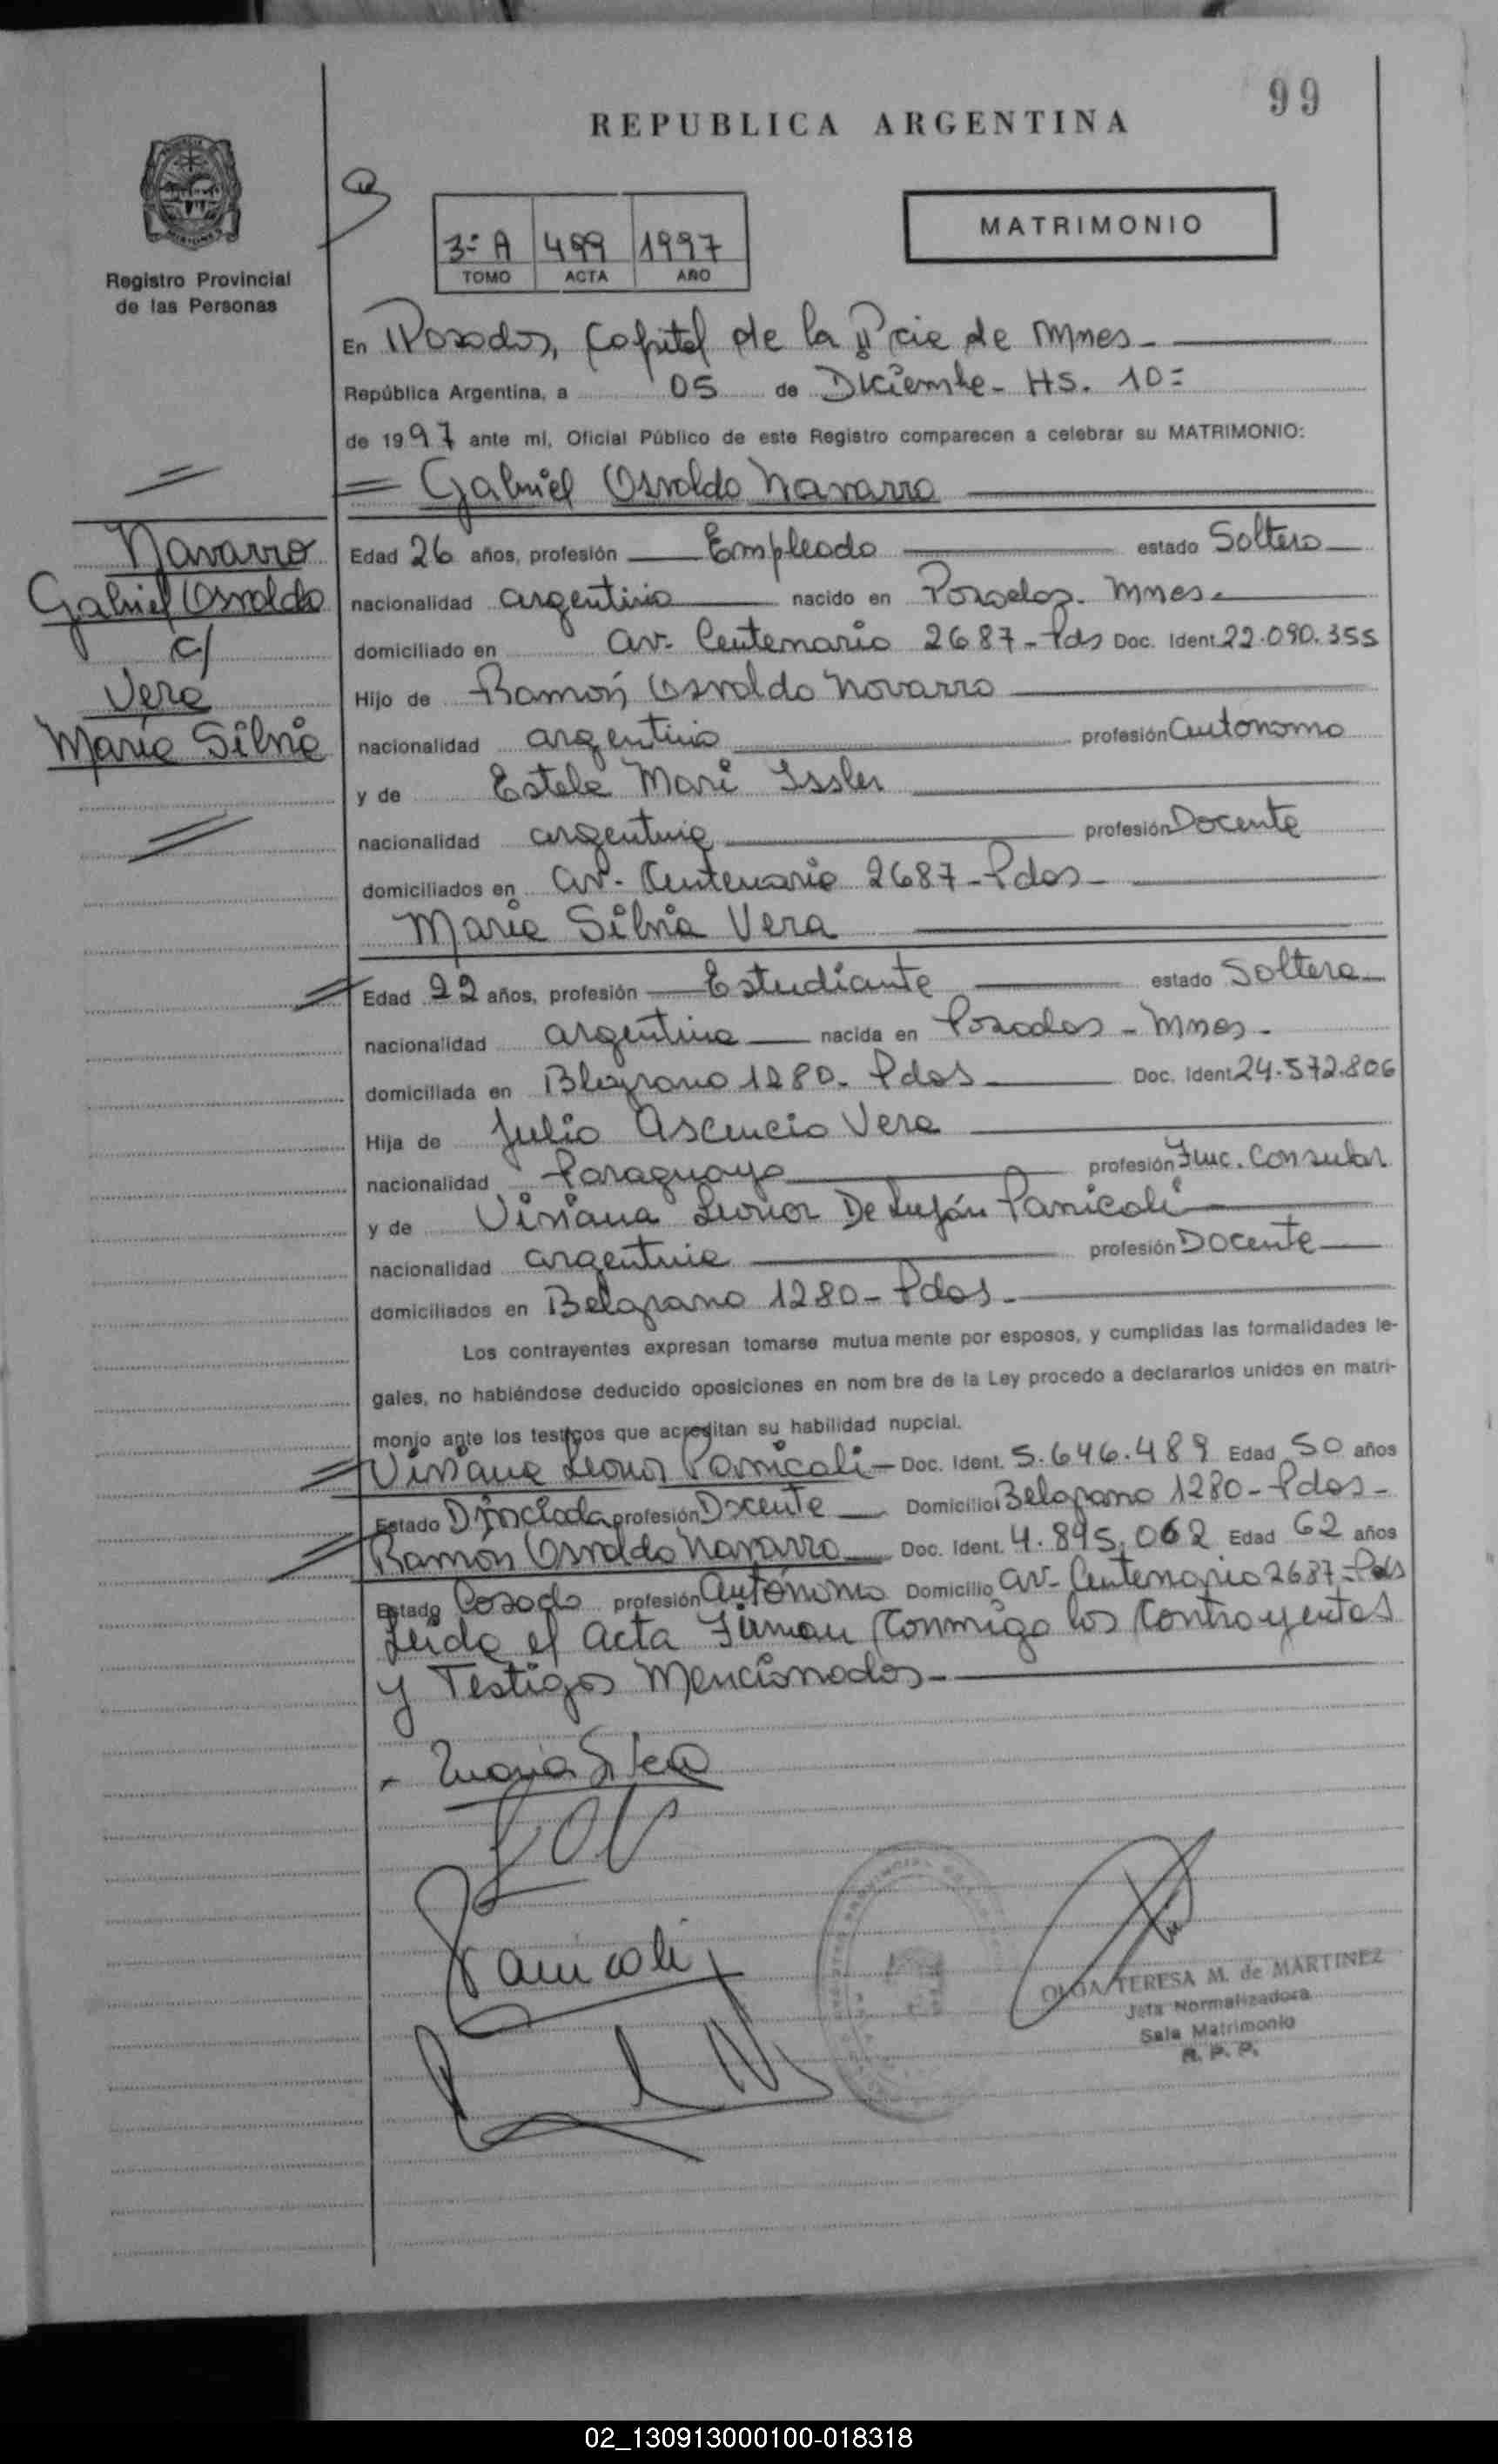 99
REPUBLICA ARGENTINA
MATRIMONIO
3=A 499 1997
TOMO ACTA AÑO
Registro Provincial
de las Personas
En Posadas, Capital de la Pcia de Mnes
República Argentina, a 05 de Diciembre - HS. 10=
de 1997 ante mi, Oficial Público de este Registro comparecen a celebrar su MATRIMONIO:
Gabriel Osvaldo Navarro
Navarro
Gabriel Osvaldo
c/
Vera
María Silvia
Edad 26 años, profesión Empleado estado Soltero
nacionalidad argentino nacido en Posadas. Mnes.
domiciliado en av. Centenario 2687 - Pds Doc. Ident 22.090.355
Hijo de Ramón Osvaldo Navarro
nacionalidad argentino profesión autonomo
y de Estela Mari Issler
nacionalidad argentina profesión Docente
domiciliados en av. Centenario 2687 - Pdas -
María Silvia Vera
Edad 22 años, profesión Estudiante estado Soltera
nacionalidad argentina nacida en Posadas - Mnes -
domiciliada en Blegrano 1280 - Pdas Doc. Ident 24.572.806
Hija de Julio Ascencio Vera
nacionalidad Paraguaya profesión Func. Consular
y de Viviana Leonor De Luján Panicoli
nacionalidad argentina profesión Docente
domiciliados en Belgrano 1280 - Pdas -
Los contrayentes expresan tomarse mutua mente por esposos, y cumplidas las formalidades le-
gales, no habiéndose deducido oposiciones en nom bre de la Ley procedo a declararlos unidos en matri-
monio ante los testigos que acreditan su habilidad nupcial.
Viviana Leonor Panicoli - Doc. Ident. 5.646.489 Edad 50 años
Estado Divorciada profesión Docente Domicilio Belgrano 1280 - Pdas -
Ramón Osvaldo Navarro Doc. Ident. 4.895.062 Edad 62 años
Estado Casado profesión autónomo Domicilio av. Centenario 2687 - Pds
Leida el acta Firman Conmigo los Contrayentes
y Testigos Mencionados -
Panicoli
OLGA TERESA M. de MARTINEZ
Jefa Normalizadora
Sala Matrimonio
R. P. P.
02_130913000100-018318